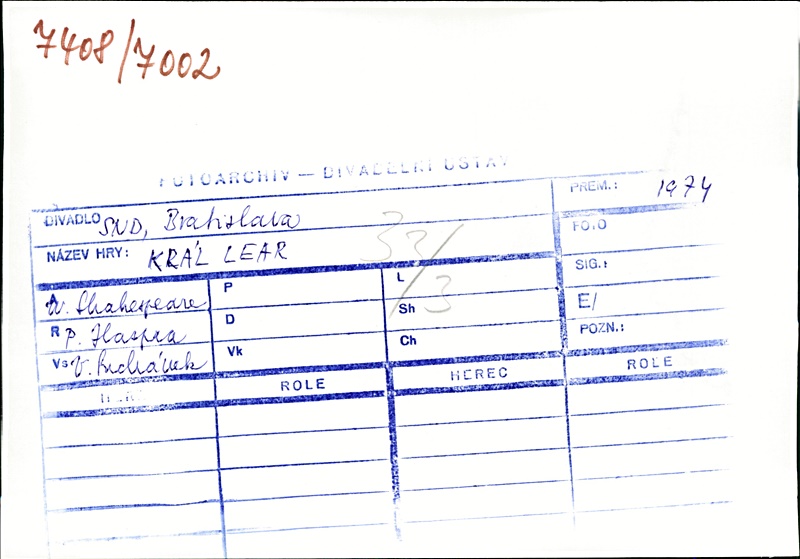 7408/7002
FOTOARCHIV — DIVADELNÍ ÚSTAV
DIVADLO SND, Bratislava
PREM.: 1974
NÁZEV HRY: KRÁL LEAR
33/3
FOTO
SIG.:
E/
POZN.:
A W. Shakespeare P L
R P. Haspra D Sh
Vs V. Suchánek Vk Ch
HEREC ROLE HEREC ROLE